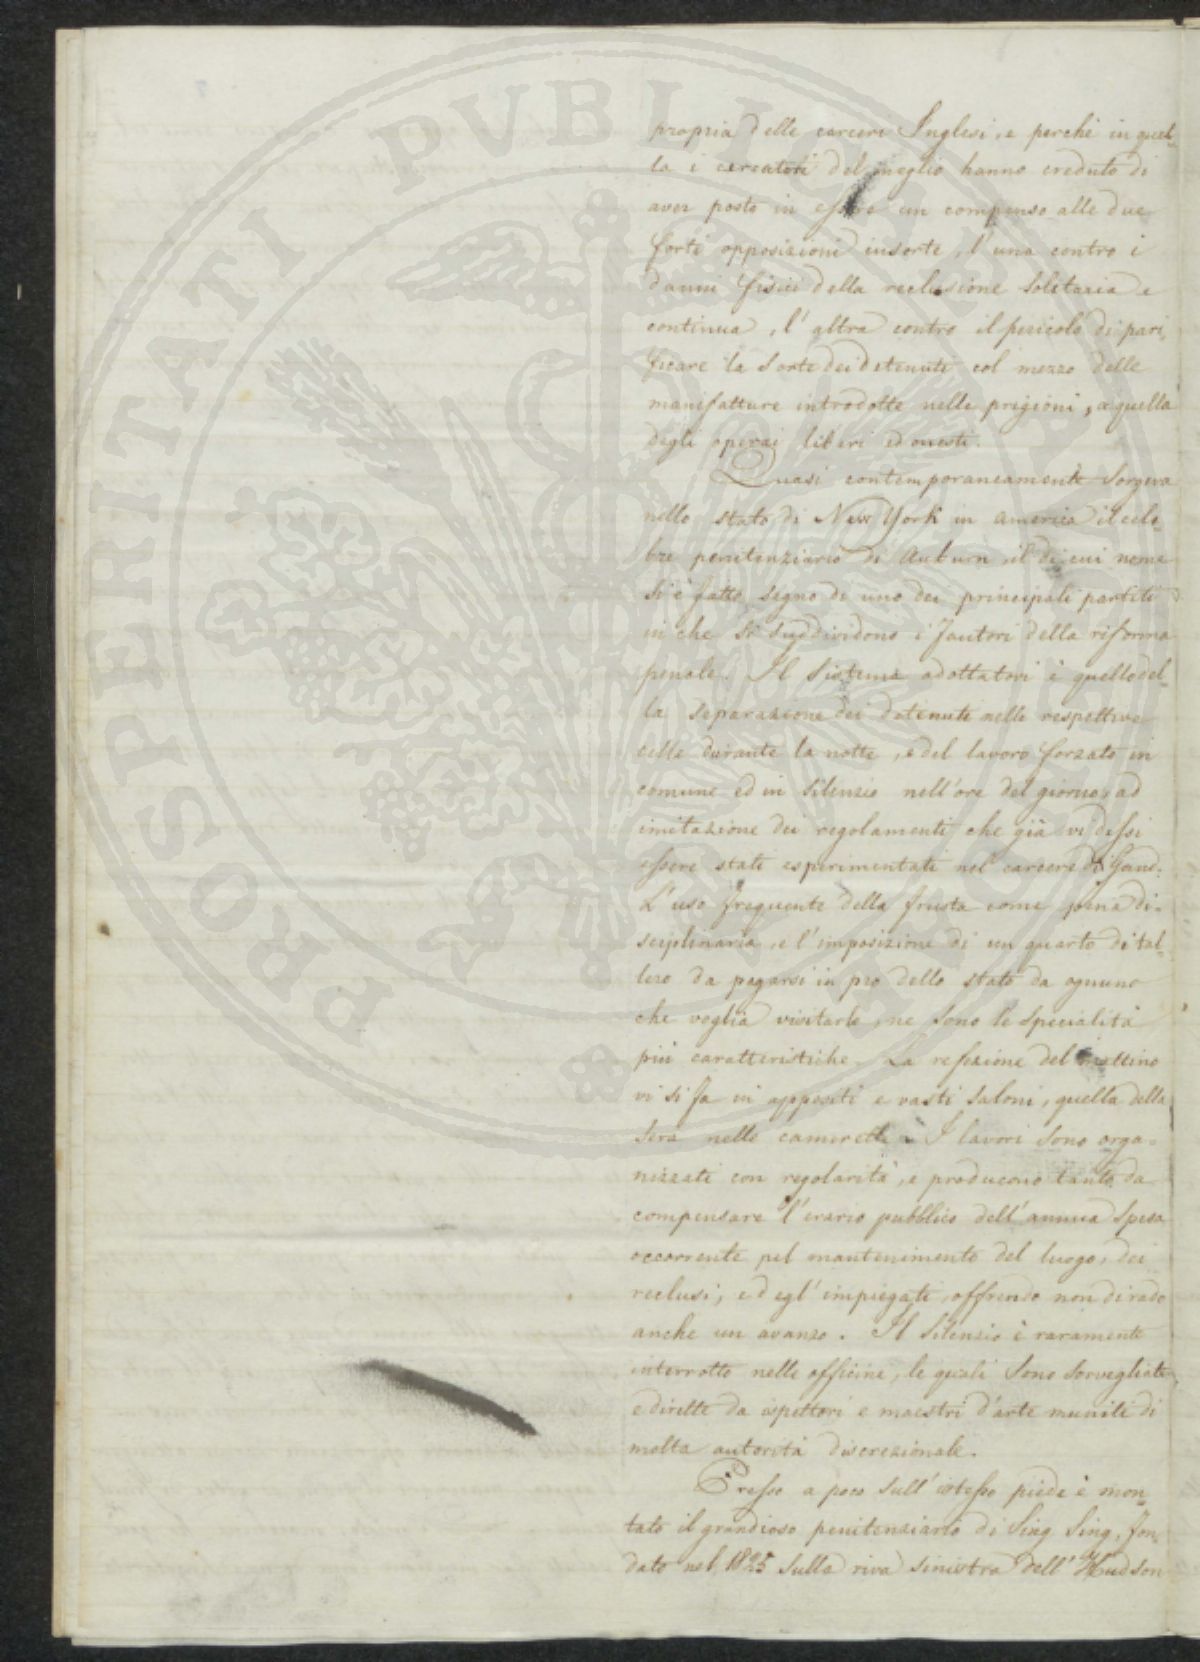 propria delle carceri Inglesi, e perchè in quel-
la i cercatori del meglio hanno creduto di
aver posto in essere un compenso alle due
forti opposizioni insorte, l'una contro i
danni fisici della reclusione solitaria e
continua, l'altra contro il pericolo di pari-
ficare la sorte dei detenuti col mezzo delle
manifatture introdotte nelle prigioni, a quella
degli operai liberi ed onesti.
Quasi contemporaneamente sorgeva
nello stato di New York in America il cele-
bre penitenziario di Auburn il di cui nome
si è fatto segno di uno dei principali partiti
in che si suddividono i fautori della riforma
penale. Il sistema adottatovi è quello del-
la separazione dei detenuti nelle respettive
celle durante la notte, e del lavoro forzato in
comune ed in silenzio nell'ore del giorno, ad
imitazione dei regolamenti che già vedessi
essere stati esperimentati nel carcere di Gand.
L'uso frequente della frusta come pena di-
sciplinaria, e l'imposizione di un quarto di tal-
lero da pagarsi in pro dello stato da ognuno
che voglia visitarlo, ne sono le specialità
più caratteristiche. La refezione del mattino
vi si fa in appositi e vasti saloni, quella della
sera nelle camerette. I lavori sono orga-
nizzati con regolarità, e producono tanto da
compensare l'erario pubblico dell'annua spesa
occorrente pel mantenimento del luogo, dei
reclusi, ed egl'impiegati, offrendo non di rado
anche un avanzo. Il silenzio è raramente
interrotto nelle officine, le quali sono sorvegliate
e dirette da ispettori e maestri d'arte muniti di
molta autorità discrezionale.
Presso a poco sull'istesso piede è mon-
tato il grandioso penitenziario di Sing Sing, fon-
dato nel 1825 sulla riva sinistra dell'Hudson
PROSPERITATI PUBLICAE